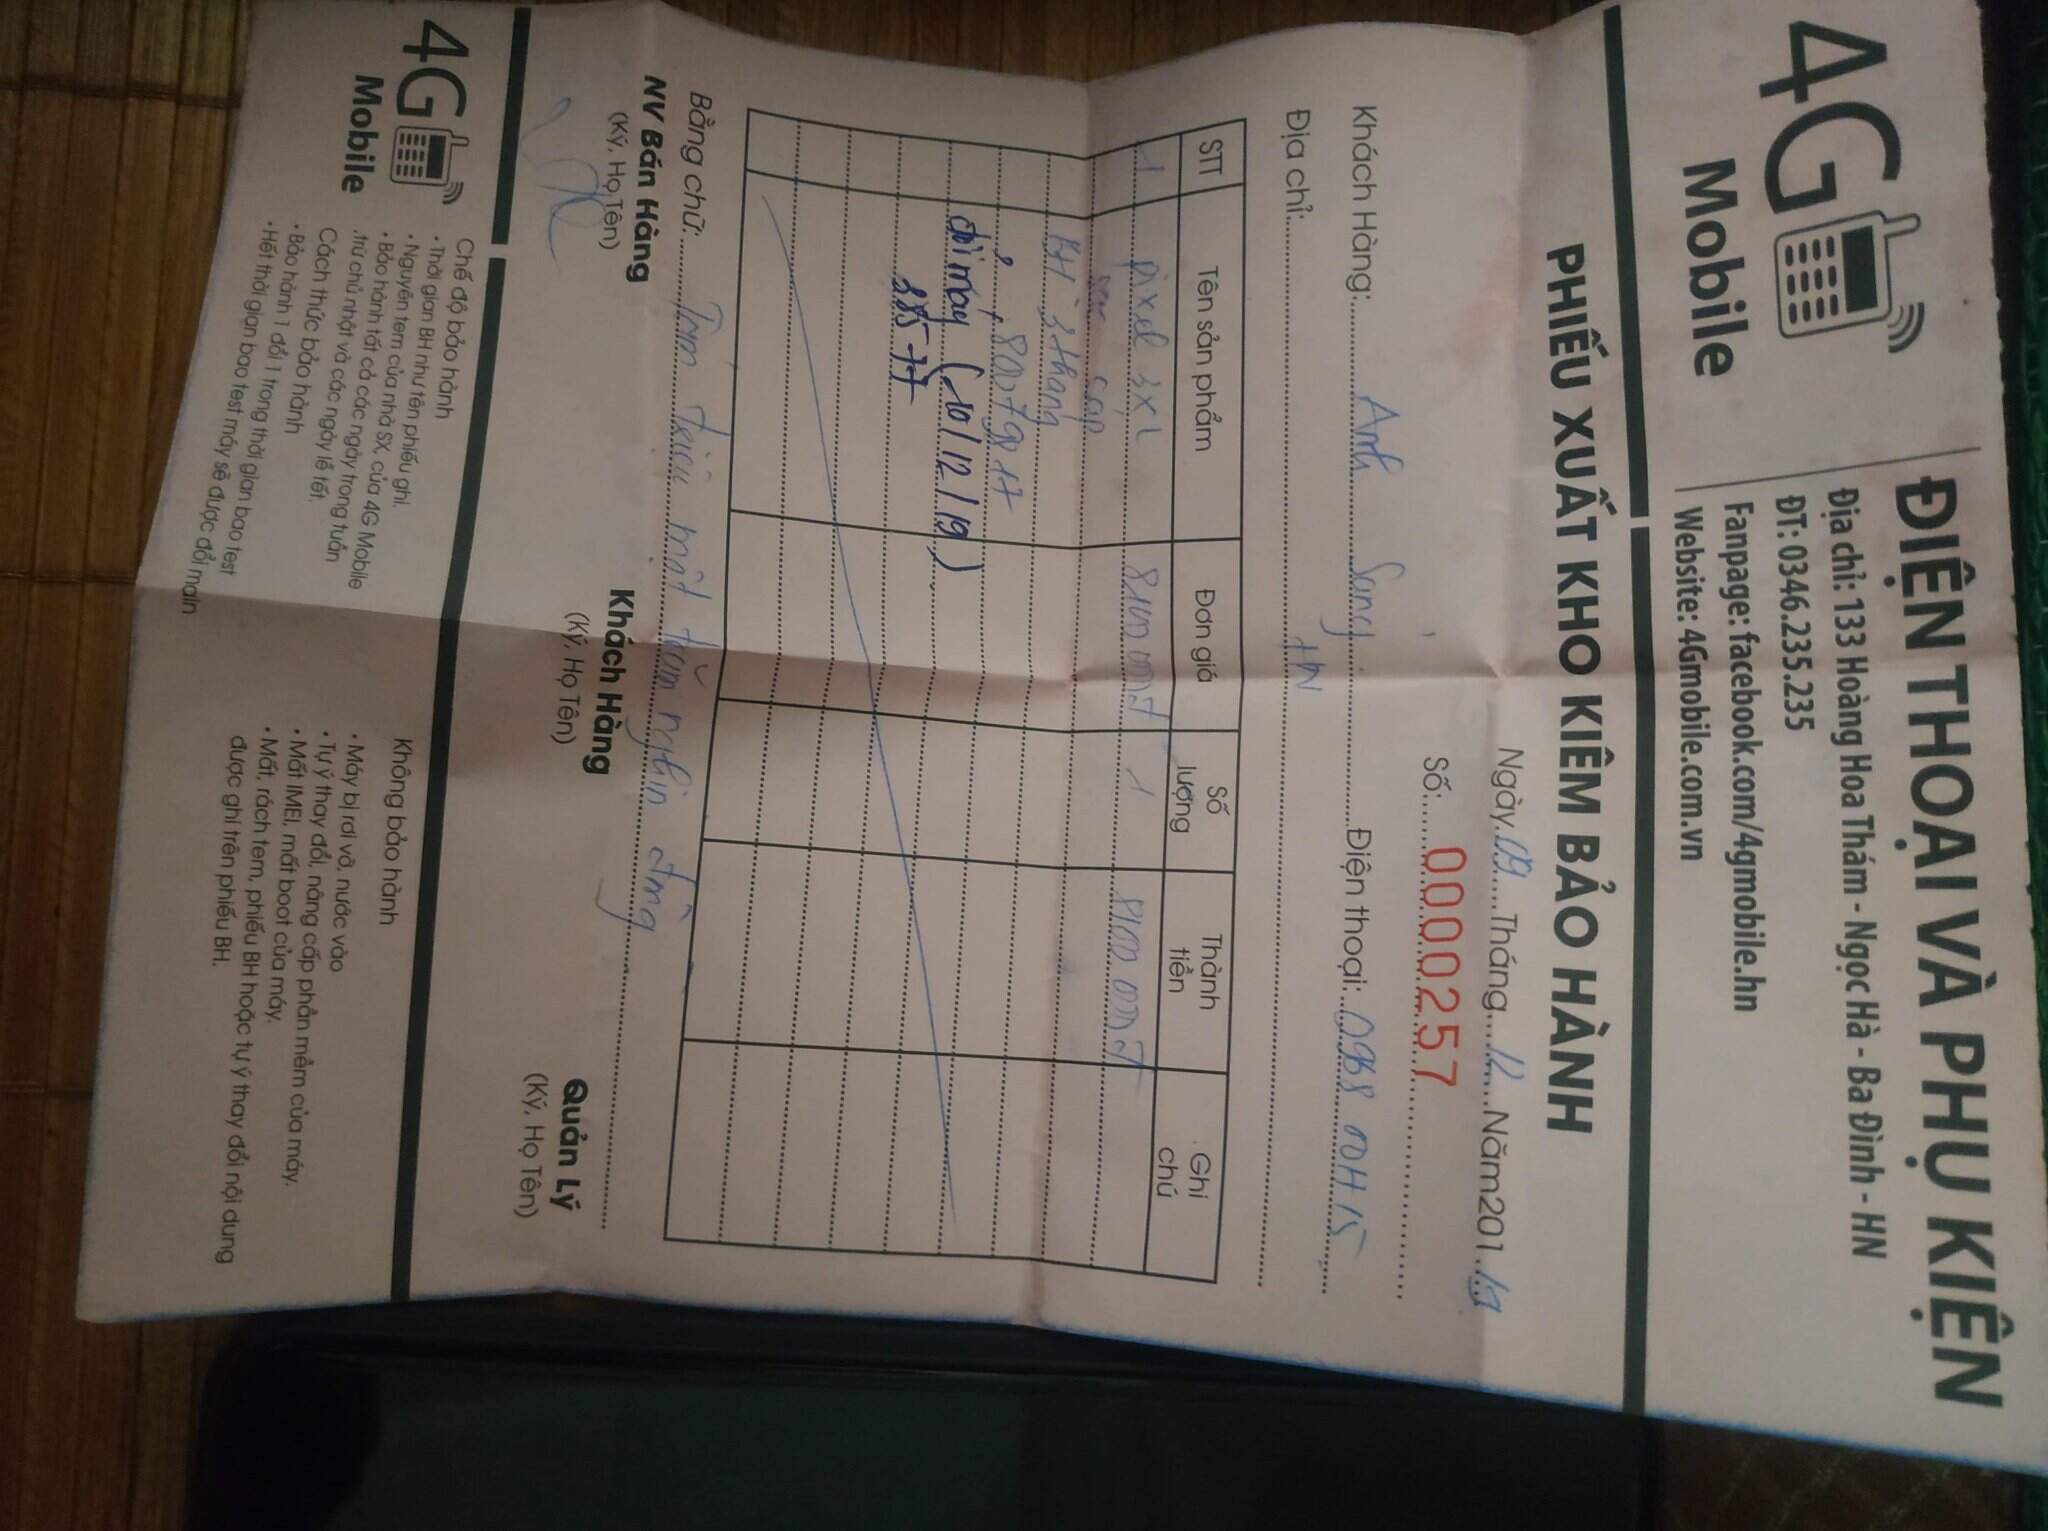 4G Mobile
ĐIỆN THOẠI VÀ PHỤ KIỆN
Địa chỉ: 133 Hoàng Hoa Thám - Ngọc Hà - Ba Đình - HN
ĐT: 0346.235.235
Fanpage: facebook.com/4gmobile.hn
Website: 4Gmobile.com.vn
PHIẾU XUẤT KHO KIÊM BẢO HÀNH
Ngày 09 Tháng 12 Năm 201 19
Số: 0000257
Khách Hàng: Anh Điện thoại:
Địa chỉ: HN
STT Tên sản phẩm Đơn giá Số lượng Thành tiền Ghi chú
1 pixel 3XL 8100 000đ 1 8100 000đ
sạc cáp
BH 3 tháng
đổi máy (10/12/19)
33577
Bằng chữ: Tám triệu một trăm nghìn đồng
NV Bán Hàng Khách Hàng Quản Lý
(Ký, Họ Tên) (Ký, Họ Tên) (Ký, Họ Tên)
4G Mobile
Chế độ bảo hành
• Thời gian BH như tên phiếu ghi.
• Nguyên tem của nhà SX, của 4G Mobile
• Bảo hành tất cả các ngày trong tuần
.trừ chủ nhật và các ngày lễ tết.
Cách thức bảo hành
• Bảo hành 1 đổi 1 trong thời gian bao test
• Hết thời gian bao test máy sẽ được đổi main
Không bảo hành
• Máy bị rơi vỡ, nước vào
• Tự ý thay đổi, nâng cấp phần mềm của máy.
• Mất IMEI, mất boot của máy.
• Mất, rách tem, phiếu BH hoặc tự ý thay đổi nội dung
được ghi trên phiếu BH.